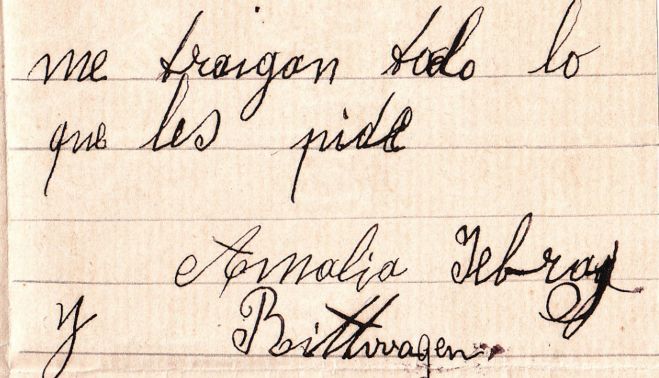 me traigan todo lo
que les pide
Amalia Iebray
y Bittwagen.